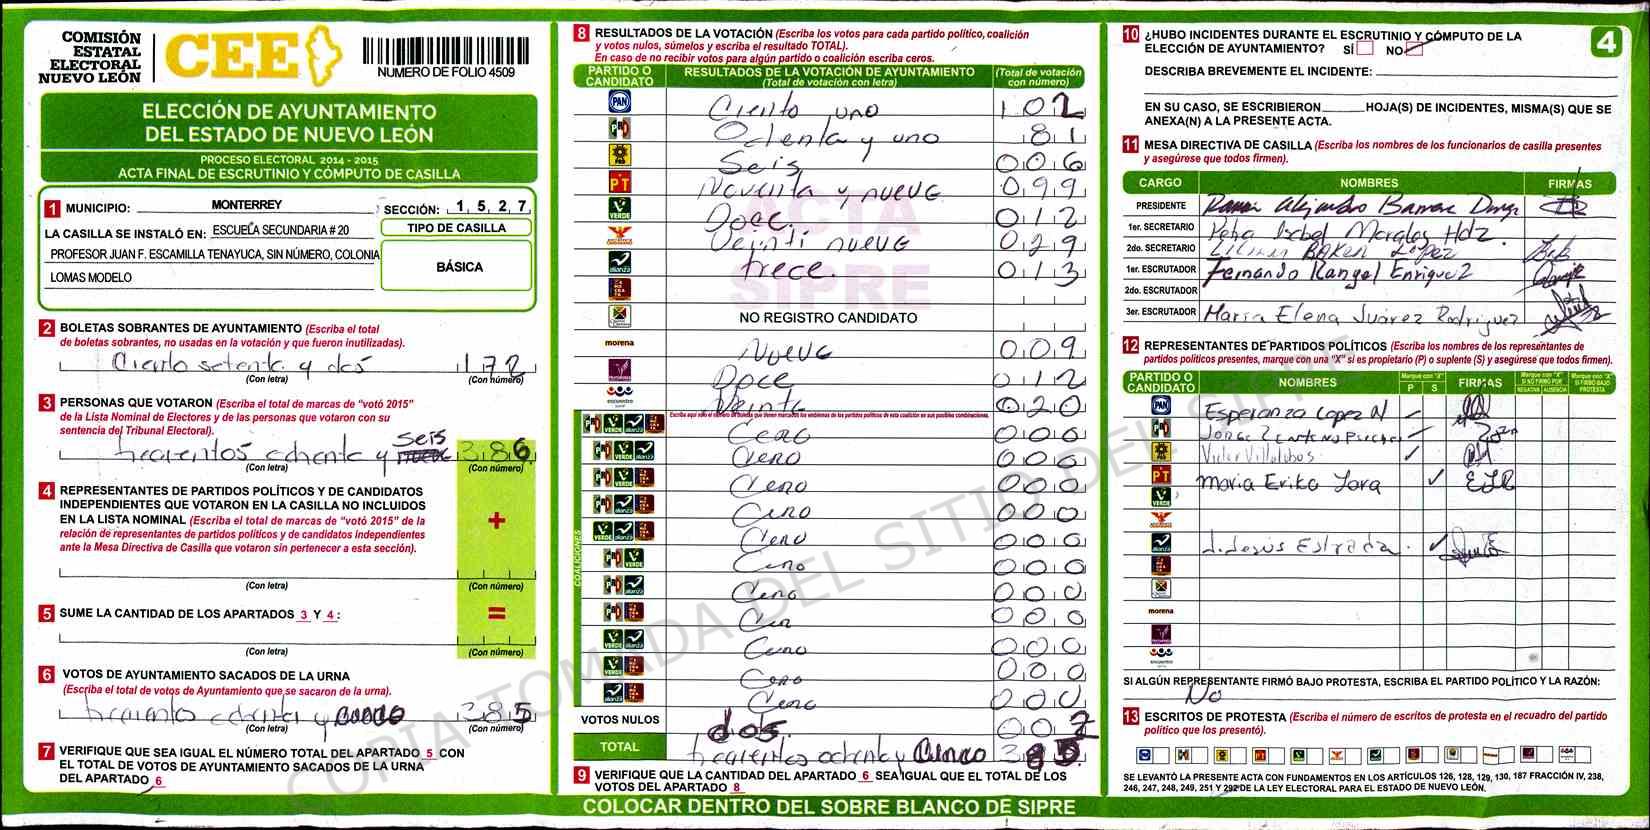 COMISIÓN
ESTATAL
ELECTORAL
NUEVO LEÓN
CEE
NUMERO DE FOLIO 4509
ELECCIÓN DE AYUNTAMIENTO
DEL ESTADO DE NUEVO LEÓN
PROCESO ELECTORAL 2014 - 2015
ACTA FINAL DE ESCRUTINIO Y CÓMPUTO DE CASILLA
1 MUNICIPIO: MONTERREY SECCIÓN: 1,5,2,7
LA CASILLA SE INSTALÓ EN: ESCUELA SECUNDARIA # 20
PROFESOR JUAN F. ESCAMILLA TENAYUCA, SIN NÚMERO, COLONIA
LOMAS MODELO
TIPO DE CASILLA
BÁSICA
2 BOLETAS SOBRANTES DE AYUNTAMIENTO (Escriba el total
de boletas sobrantes, no usadas en la votación y que fueron inutilizadas).
Ciento setenta y dos 172
(Con letra) (Con número)
3 PERSONAS QUE VOTARON (Escriba el total de marcas de “votó 2015”
de la Lista Nominal de Electores y de las personas que votaron con su
sentencia del Tribunal Electoral).
seis
386
(Con letra) (Con número)
4 REPRESENTANTES DE PARTIDOS POLÍTICOS Y DE CANDIDATOS
INDEPENDIENTES QUE VOTARON EN LA CASILLA NO INCLUIDOS
EN LA LISTA NOMINAL (Escriba el total de marcas de “votó 2015” de la
relación de representantes de partidos políticos y de candidatos independientes
ante la Mesa Directiva de Casilla que votaron sin pertenecer a esta sección).
+
(Con letra) (Con número)
5 SUME LA CANTIDAD DE LOS APARTADOS 3 Y 4:
=
(Con letra) (Con número)
6 VOTOS DE AYUNTAMIENTO SACADOS DE LA URNA
(Escriba el total de votos de Ayuntamiento que se sacaron de la urna).
385
(Con letra) (Con número)
7 VERIFIQUE QUE SEA IGUAL EL NÚMERO TOTAL DEL APARTADO 5 CON
EL TOTAL DE VOTOS DE AYUNTAMIENTO SACADOS DE LA URNA
DEL APARTADO 6
8 RESULTADOS DE LA VOTACIÓN (Escriba los votos para cada partido político, coalición
y votos nulos, súmelos y escriba el resultado TOTAL).
En caso de no recibir votos para algún partido o coalición escriba ceros.
PARTIDO O CANDIDATO RESULTADOS DE LA VOTACIÓN DE AYUNTAMIENTO (Total de votación con letra) (Total de votación con número)
PAN Ciento uno 102
PRI Ochenta y uno 81
PRD Seis 006
PT Noventa y nueve 099
VERDE Doce 012
Veinti nueve 029
alianza trece. 013
NO REGISTRO CANDIDATO
morena Nueve 009
Doce 012
encuentro Veinte 020
COALICIONES
Escriba aquí sólo el número de boletas que tienen marcados los emblemas de los partidos políticos de esta coalición en sus posibles combinaciones.
Cero 000
Cero 000
Cero 000
Cero 000
Cero 000
Cero 000
Cero 000
Cero 000
Cero 000
Cero 000
Cero 000
VOTOS NULOS dos. 002
TOTAL 385
9 VERIFIQUE QUE LA CANTIDAD DEL APARTADO 6 SEA IGUAL QUE EL TOTAL DE LOS
VOTOS DEL APARTADO 8
COLOCAR DENTRO DEL SOBRE BLANCO DE SIPRE
ACTA
SIPRE
COPIA TOMADA DEL SITIO DEL SIPRE
4
10 ¿HUBO INCIDENTES DURANTE EL ESCRUTINIO Y CÓMPUTO DE LA
ELECCIÓN DE AYUNTAMIENTO? SÍ NO
DESCRIBA BREVEMENTE EL INCIDENTE:
EN SU CASO, SE ESCRIBIERON HOJA(S) DE INCIDENTES, MISMA(S) QUE SE
ANEXA(N) A LA PRESENTE ACTA.
11 MESA DIRECTIVA DE CASILLA (Escriba los nombres de los funcionarios de casilla presentes
y asegúrese que todos firmen).
CARGO NOMBRES FIRMAS
PRESIDENTE Alejandro
1er. SECRETARIO Isabel Hdz.
2do. SECRETARIO López
1er. ESCRUTADOR Fernando Rangel Enriquez
2do. ESCRUTADOR
3er. ESCRUTADOR Maria Elena Juárez Rodriguez
12 REPRESENTANTES DE PARTIDOS POLÍTICOS (Escriba los nombres de los representantes de
partidos políticos presentes, marque con una “X” si es propietario (P) o suplente (S) y asegúrese que todos firmen).
PARTIDO O CANDIDATO NOMBRES Marque con “X” P S FIRMAS Marque con “X” SI NO FIRMÓ POR NEGATIVA AUSENCIA Marque con “X” SI FIRMÓ BAJO PROTESTA
PAN Esperanza Lopez
PRI Jorge
PRD Victor Villalobos
PT Maria Erika Jara
VERDE
alianza J. Jesús Estrada
morena
encuentro
SI ALGÚN REPRESENTANTE FIRMÓ BAJO PROTESTA, ESCRIBA EL PARTIDO POLÍTICO Y LA RAZÓN:
No
13 ESCRITOS DE PROTESTA (Escriba el número de escritos de protesta en el recuadro del partido
político que los presentó).
SE LEVANTÓ LA PRESENTE ACTA CON FUNDAMENTOS EN LOS ARTÍCULOS 126, 128, 129, 130, 187 FRACCIÓN IV, 238,
246, 247, 248, 249, 251 Y 292 DE LA LEY ELECTORAL PARA EL ESTADO DE NUEVO LEÓN.